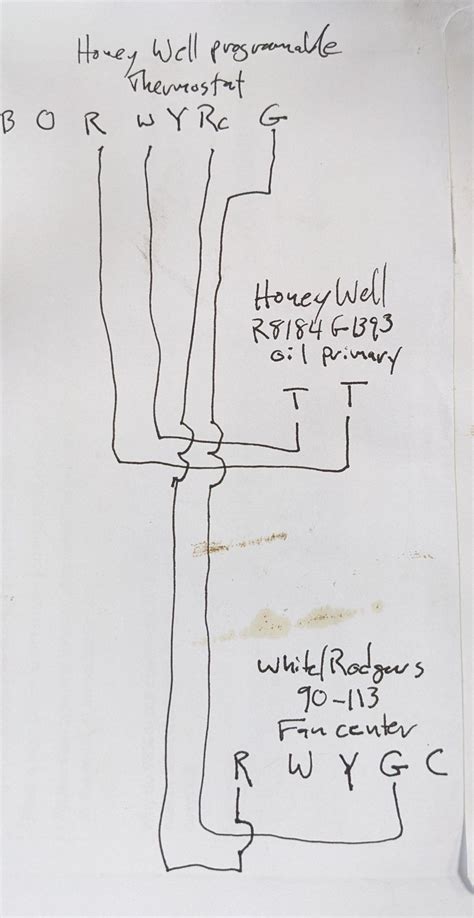 Honey Well programable
Thermostat
B O R W Y Rc G
Honey Well
R8184 G1393
oil primary
T T
White/Rodgers
90-113
Fan center
R W Y G C